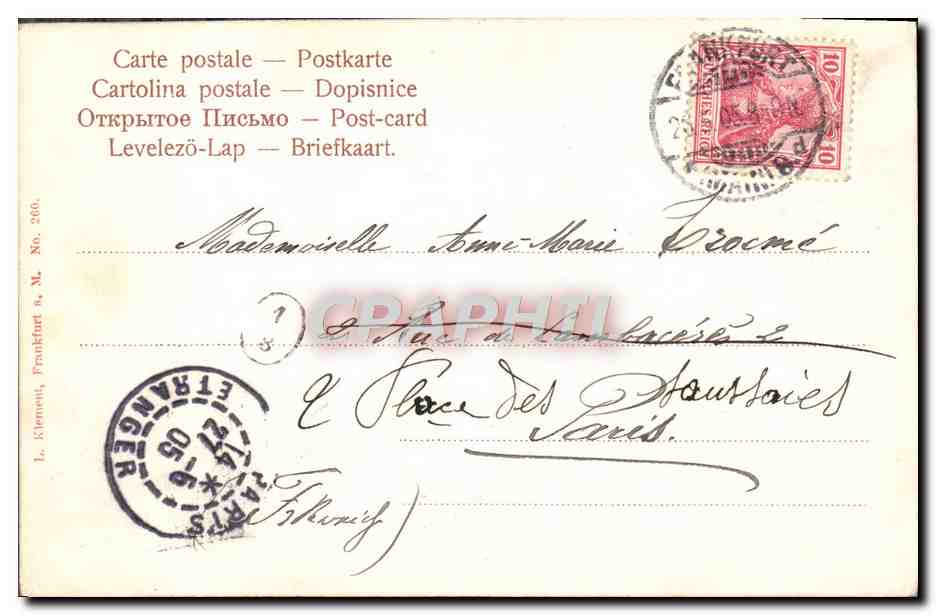 Carte postale — Postkarte
Cartolina postale — Dopisnice
Открытое Письмо — Post-card
Levelező-Lap — Briefkaart.
10 10
FRANKFURT
Mademoiselle Anne-Marie Trocmé
1
8
CPAPHTI
2 Rue de Cambacérès 2
2 Place des Saussaies
Paris.
(Frkreich)
PARIS ETRANGER
14
27 - 6
05
L. Klement, Frankfurt a. M. No. 260.